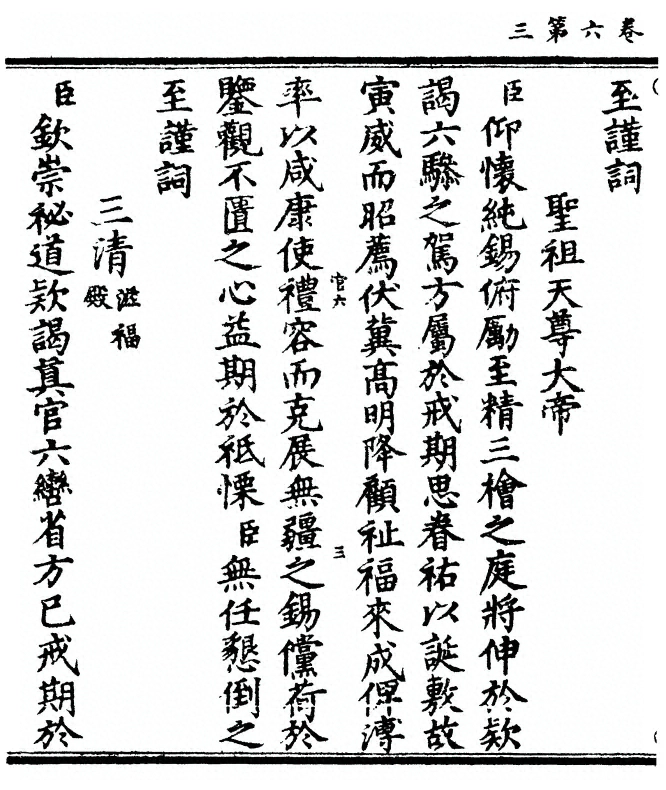 卷六第三
至謹詞
聖祖天尊大帝
臣仰懷純錫俯勵至精三檜之庭將伸於欵
謁六驂之駕方屬於戒期思眷祐以誕敷故
寅威而昭薦伏冀高明降顧祉福來成俾溥
率以咸康使禮容而克展無疆之錫儻荷於
官六
三
鑒觀不匱之心益期於祗慄臣無任懇倒之
至謹詞
三清滋福殿
臣欽崇祕道欵謁真官六轡省方已戒期於